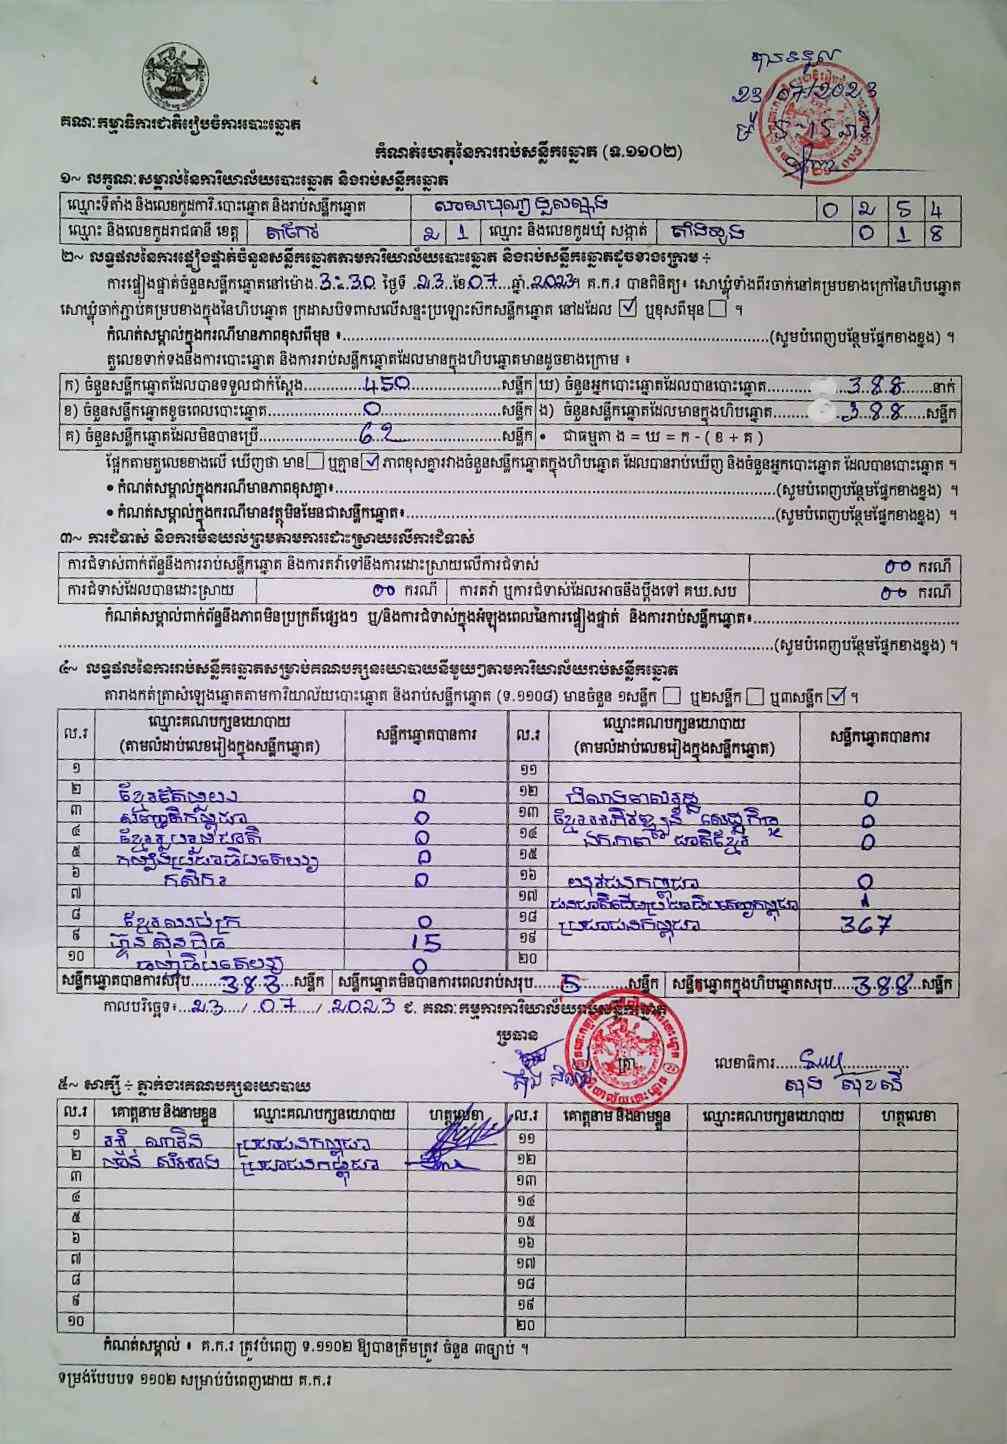 បានទទួល
23/07/2023
ម៉ 5:15 នាទី
គណៈកម្មាធិការជាតិរៀបចំការបោះឆ្នោត
កំណត់ហេតុនៃការរាប់សន្លឹកឆ្នោត (ទ.១១០២)
១~ លក្ខណៈសម្គាល់នៃការិយាល័យបោះឆ្នោត និងរាប់សន្លឹកឆ្នោត
ឈ្មោះទីតាំង និងលេខកូដការិ.បោះឆ្នោត និងរាប់សន្លឹកឆ្នោត សាលាបុណ្យ 0 2 5 4
ឈ្មោះ និងលេខកូដរាជធានី ខេត្ត តាកែវ 2 1 ឈ្មោះ និងលេខកូដឃុំ សង្កាត់ 0 1 8
២~ លទ្ធផលនៃការផ្ទៀងផ្ទាត់ចំនួនសន្លឹកឆ្នោតតាមការិយាល័យបោះឆ្នោត និងរាប់សន្លឹកឆ្នោតដូចខាងក្រោម ÷
ការផ្ទៀងផ្ទាត់ចំនួនសន្លឹកឆ្នោតនៅម៉ោង 3:30 ថ្ងៃទី 23 ខែ 07 ឆ្នាំ 2023។ គ.ក.រ បានពិនិត្យ៖ សោឃ្លុំទាំងពីរចាក់នៅគម្របខាងក្រៅនៃហិបឆ្នោត
សោឃ្លុំចាក់ភ្ជាប់គម្របខាងក្នុងនៃហិបឆ្នោត ក្រដាសបិទពាសលើសន្ទះប្រឡោះស៊កសន្លឹកឆ្នោត នៅដដែល ☑ ឬខុសពីមុន ☐ ។
កំណត់សម្គាល់ក្នុងករណីមានភាពខុសពីមុន ៖ (សូមបំពេញបន្ថែមផ្នែកខាងខ្នង) ។
តួលេខទាក់ទងនឹងការបោះឆ្នោត និងការរាប់សន្លឹកឆ្នោតដែលមានក្នុងហិបឆ្នោតមានដូចខាងក្រោម ៖
ក) ចំនួនសន្លឹកឆ្នោតដែលបានទទួលជាក់ស្តែង 450 សន្លឹក ឃ) ចំនួនអ្នកបោះឆ្នោតដែលបានបោះឆ្នោត 388 នាក់
ខ) ចំនួនសន្លឹកឆ្នោតខូចពេលបោះឆ្នោត 0 សន្លឹក ង) ចំនួនសន្លឹកឆ្នោតដែលមានក្នុងហិបឆ្នោត 388 សន្លឹក
គ) ចំនួនសន្លឹកឆ្នោតដែលមិនបានប្រើ 62 សន្លឹក • ជាធម្មតា ង = ឃ = ក - ( ខ + គ )
ផ្អែកតាមតួលេខខាងលើ ឃើញថា មាន ☐ ឬគ្មាន ☑ ភាពខុសគ្នារវាងចំនួនសន្លឹកឆ្នោតក្នុងហិបឆ្នោត ដែលបានរាប់ឃើញ និងចំនួនអ្នកបោះឆ្នោត ដែលបានបោះឆ្នោត ។
• កំណត់សម្គាល់ក្នុងករណីមានភាពខុសគ្នា៖ (សូមបំពេញបន្ថែមផ្នែកខាងខ្នង) ។
• កំណត់សម្គាល់ក្នុងករណីមានវត្ថុមិនមែនជាសន្លឹកឆ្នោត៖ (សូមបំពេញបន្ថែមផ្នែកខាងខ្នង) ។
៣~ ការជំទាស់ និងការមិនយល់ព្រមតាមការដោះស្រាយលើការជំទាស់
ការជំទាស់ពាក់ព័ន្ធនឹងការរាប់សន្លឹកឆ្នោត និងការតវ៉ាទៅនឹងការដោះស្រាយលើការជំទាស់ 00 ករណី
ការជំទាស់ដែលបានដោះស្រាយ 00 ករណី ការតវ៉ា ឬការជំទាស់ដែលអាចនឹងប្តឹងទៅ គឃ.សប 00 ករណី
កំណត់សម្គាល់ពាក់ព័ន្ធនឹងភាពមិនប្រក្រតីផ្សេងៗ ឬ/និងការជំទាស់ក្នុងអំឡុងពេលនៃការផ្ទៀងផ្ទាត់ និងការរាប់សន្លឹកឆ្នោត៖
(សូមបំពេញបន្ថែមផ្នែកខាងខ្នង) ។
៤~ លទ្ធផលនៃការរាប់សន្លឹកឆ្នោតសម្រាប់គណបក្សនយោបាយនីមួយៗតាមការិយាល័យរាប់សន្លឹកឆ្នោត
តារាងកត់ត្រាសំឡេងឆ្នោតតាមការិយាល័យបោះឆ្នោត និងរាប់សន្លឹកឆ្នោត (ទ.១១០៨) មានចំនួន ១សន្លឹក ☐ ឬ២សន្លឹក ☐ ឬ៣សន្លឹក ☑ ។
ល.រ ឈ្មោះគណបក្សនយោបាយ (តាមលំដាប់លេខរៀងក្នុងសន្លឹកឆ្នោត) សន្លឹកឆ្នោតបានការ ល.រ ឈ្មោះគណបក្សនយោបាយ (តាមលំដាប់លេខរៀងក្នុងសន្លឹកឆ្នោត) សន្លឹកឆ្នោតបានការ
១ ១១
២ ខ្មែរតែមួយ 0 ១២ 0
៣ សញ្ជាតិកម្ពុជា 0 ១៣ ខ្មែរអភិវឌ្ឍន៍ សេដ្ឋកិច្ច 0
៤ ខ្មែររួបរួមជាតិ 0 ១៤ ឯកភាពជាតិខ្មែរ 0
៥ សំបុកឃ្មុំប្រជាធិបតេយ្យ 0 ១៥
៦ កសិករ 0 ១៦ យុវជនកម្ពុជា 0
៧ ១៧ ជនជាតិដើមប្រជាធិបតេយ្យកម្ពុជា 1
៨ ខ្មែរឈប់ក្រ 0 ១៨ ប្រជាជនកម្ពុជា 367
៩ ហ៊្វុនស៊ិនប៉ិច 15 ១៩
១០ ធម្មាធិបតេយ្យ 0 ២០
សន្លឹកឆ្នោតបានការសរុប 383 សន្លឹក សន្លឹកឆ្នោតមិនបានការពេលរាប់សរុប 5 សន្លឹក សន្លឹកឆ្នោតក្នុងហិបឆ្នោតសរុប 388 សន្លឹក
កាលបរិច្ឆេទ៖ 23 / 07 / 2023 ជ. គណៈកម្មការការិយាល័យរាប់សន្លឹកឆ្នោត
ប្រធាន
ត្រា លេខាធិការ
៥~ សាក្សី ÷ ភ្នាក់ងារគណបក្សនយោបាយ
ល.រ គោត្តនាម និងនាមខ្លួន ឈ្មោះគណបក្សនយោបាយ ហត្ថលេខា ល.រ គោត្តនាម និងនាមខ្លួន ឈ្មោះគណបក្សនយោបាយ ហត្ថលេខា
១ ប្រជាជនកម្ពុជា ១១
២ ប្រជាជនកម្ពុជា ១២
៣ ១៣
៤ ១៤
៥ ១៥
៦ ១៦
៧ ១៧
៨ ១៨
៩ ១៩
១០ ២០
កំណត់សម្គាល់ ៖ គ.ក.រ ត្រូវបំពេញ ទ.១១០២ ឱ្យបានត្រឹមត្រូវ ចំនួន ៣ច្បាប់ ។
ទម្រង់បែបបទ ១១០២ សម្រាប់បំពេញដោយ គ.ក.រ